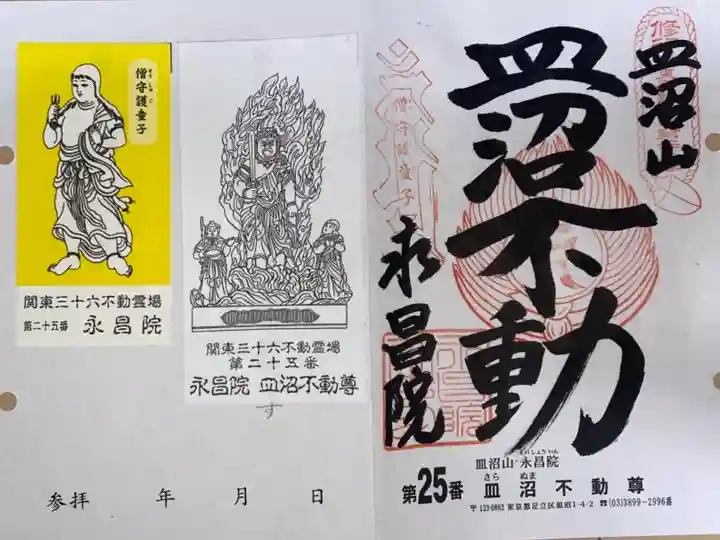 僧守護童子
そうしゅご
関東三十六不動霊場
第二十五番 永昌院
関東三十六不動霊場
第二十五番
永昌院 皿沼不動尊
す
参拝 年 月 日
皿沼山
皿沼不動
永昌院
僧守護童子
皿沼山 永昌院
さら ぬま
第25番 皿沼不動尊
〒123-0862 東京都足立区皿沼1-4-2 ☎(03)3899-2996番